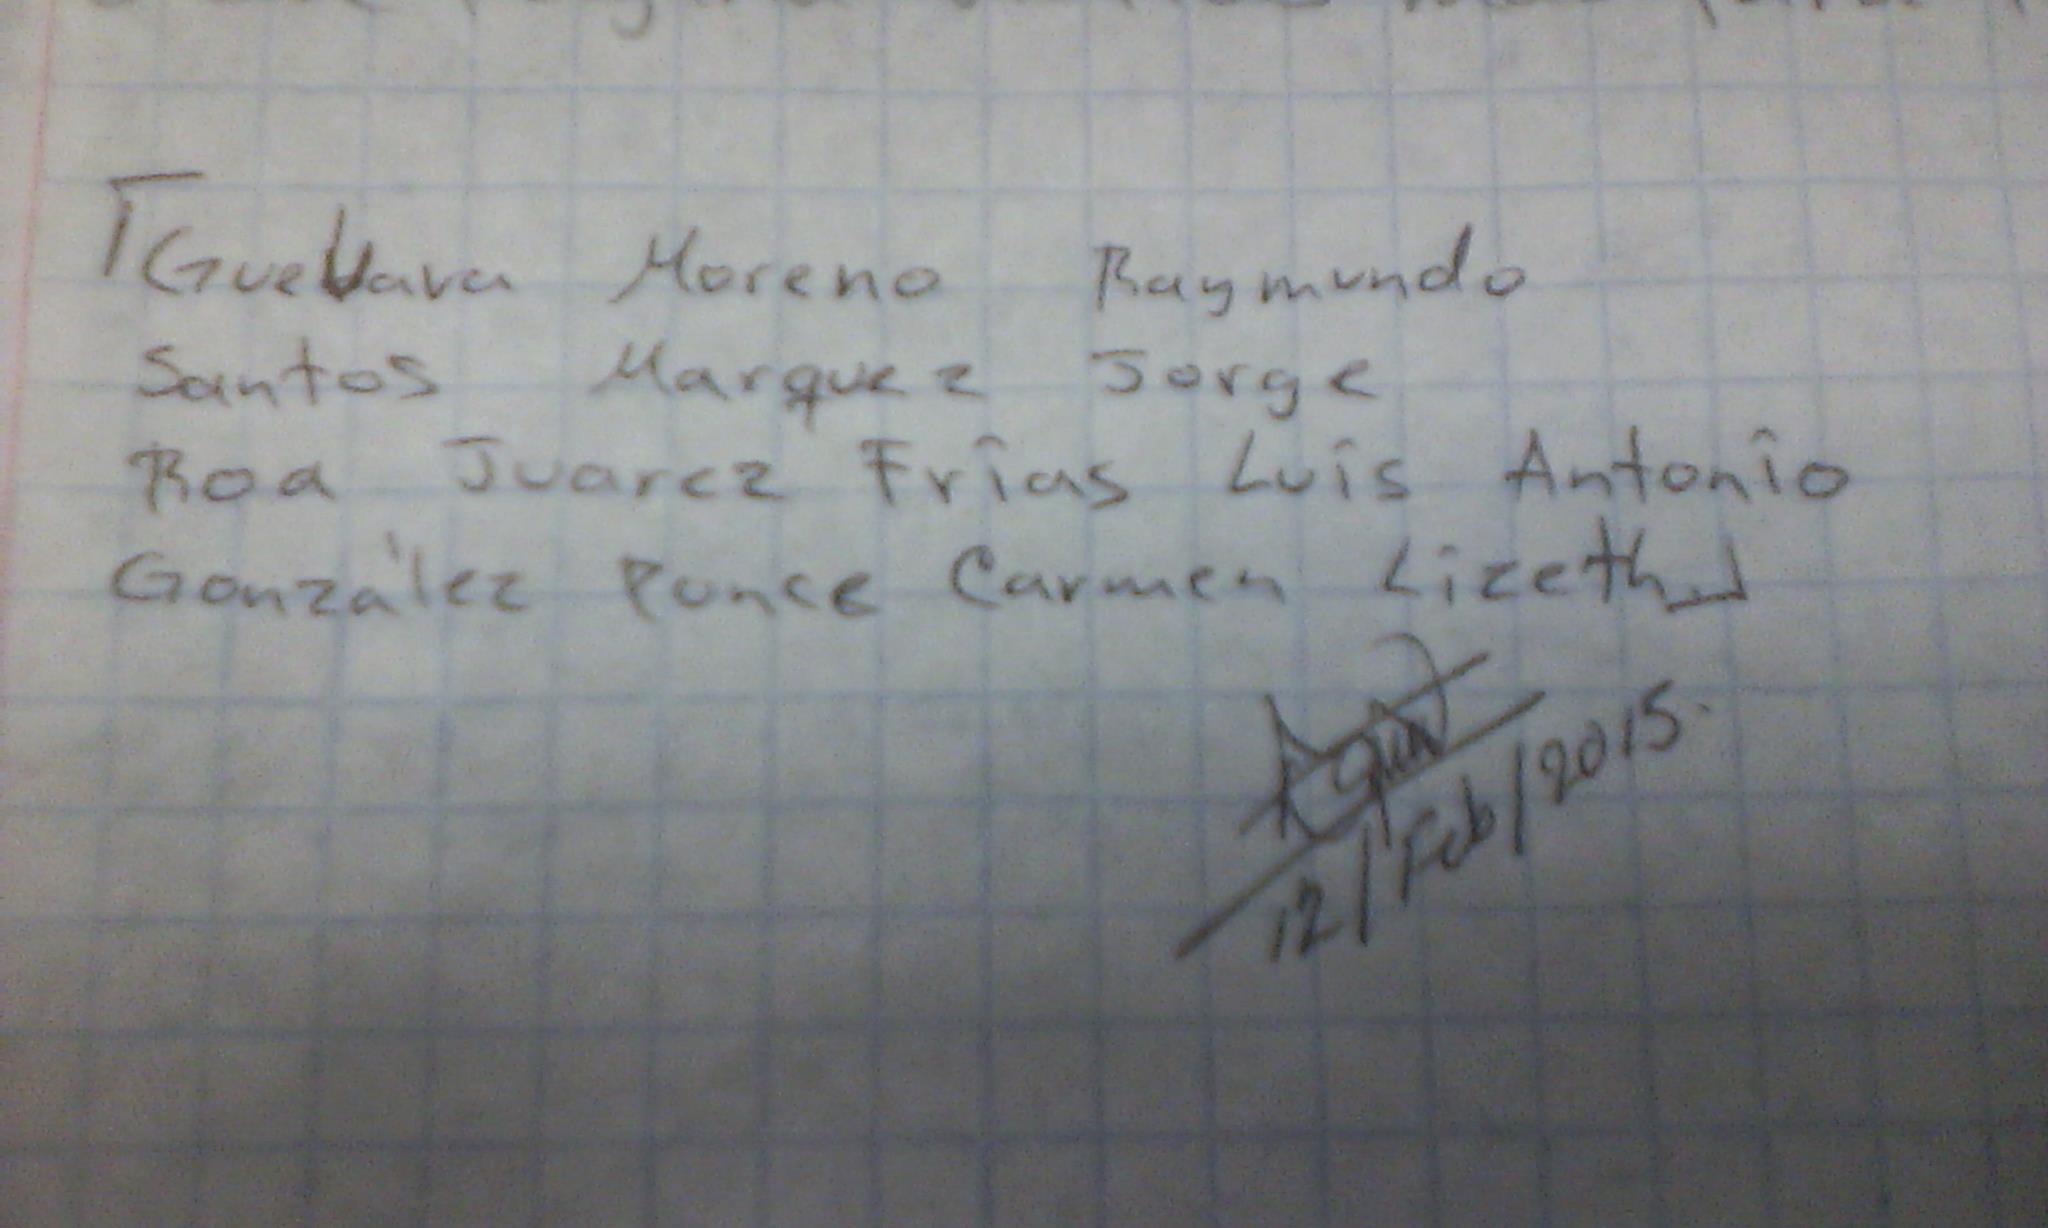 Guevara Moreno Raymundo
Santos Marquez Jorge
Roa Juarez Frias Luis Antonio
González Ponce Carmen Lizeth
12/Feb/2015.